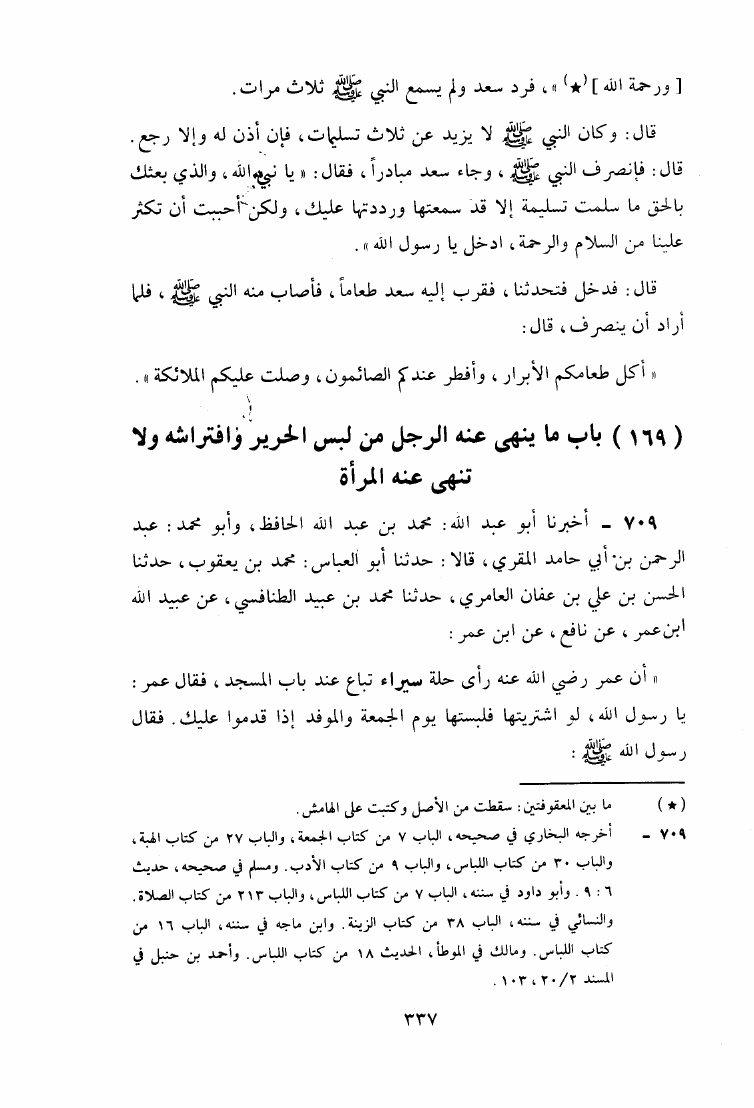 [ ورحمة الله ](★) »، فرد سعد ولم يسمع النبي ﷺ ثلاث مرات.
قال: وكان النبي ﷺ لا يزيد عن ثلاث تسليمات، فإن أذن له وإلا رجع.
قال: فإنصرف النبي ﷺ، وجاء سعد مبادراً، فقال: « يا نبي الله، والذي بعثك
بالحق ما سلمت تسليمة إلا قد سمعتها ورددتها عليك، ولكن أحببت أن تكثر
علينا من السلام والرحمة، ادخل يا رسول الله ».
قال: فدخل فتحدثنا، فقرب إليه سعد طعاماً، فأصاب منه النبي ﷺ، فلما
أراد أن ينصرف، قال:
« أكل طعامكم الأبرار، وأفطر عندكم الصائمون، وصلت عليكم الملائكة ».
( ١٦٩ ) باب ما ينهى عنه الرجل من لبس الحرير وافتراشه ولا
تنهى عنه المرأة
٧٠٩ ـ أخبرنا أبو عبد الله: محمد بن عبد الله الحافظ، وأبو محمد: عبد
الرحمن بن أبي حامد المقري، قالا: حدثنا أبو العباس: محمد بن يعقوب، حدثنا
الحسن بن علي بن عفان العامري، حدثنا محمد بن عبيد الطنافسي، عن عبيد الله
ابن عمر، عن نافع، عن ابن عمر:
« أن عمر رضي الله عنه رأى حلة سيراء تباع عند باب المسجد، فقال عمر:
يا رسول الله، لو اشتريتها فلبستها يوم الجمعة والموفد إذا قدموا عليك. فقال
رسول الله ﷺ:
(★) ما بين المعقوفتين: سقطت من الأصل وكتبت على الهامش.
٧٠٩ ـ أخرجه البخاري في صحيحه، الباب ٧ من كتاب الجمعة، والباب ٢٧ من كتاب الهبة،
والباب ٣٠ من كتاب اللباس، والباب ٩ من كتاب الأدب. ومسلم في صحيحه، حديث
٦ : ٩. وأبو داود في سننه، الباب ٧ من كتاب اللباس، والباب ٢١٣ من كتاب الصلاة.
والنسائي في سننه، الباب ٣٨ من كتاب الزينة. وابن ماجه في سننه، الباب ١٦ من
كتاب اللباس. ومالك في الموطأ، الحديث ١٨ من كتاب اللباس. وأحمد بن حنبل في
المسند ٢٠/٢، ١٠٣.
٣٣٧